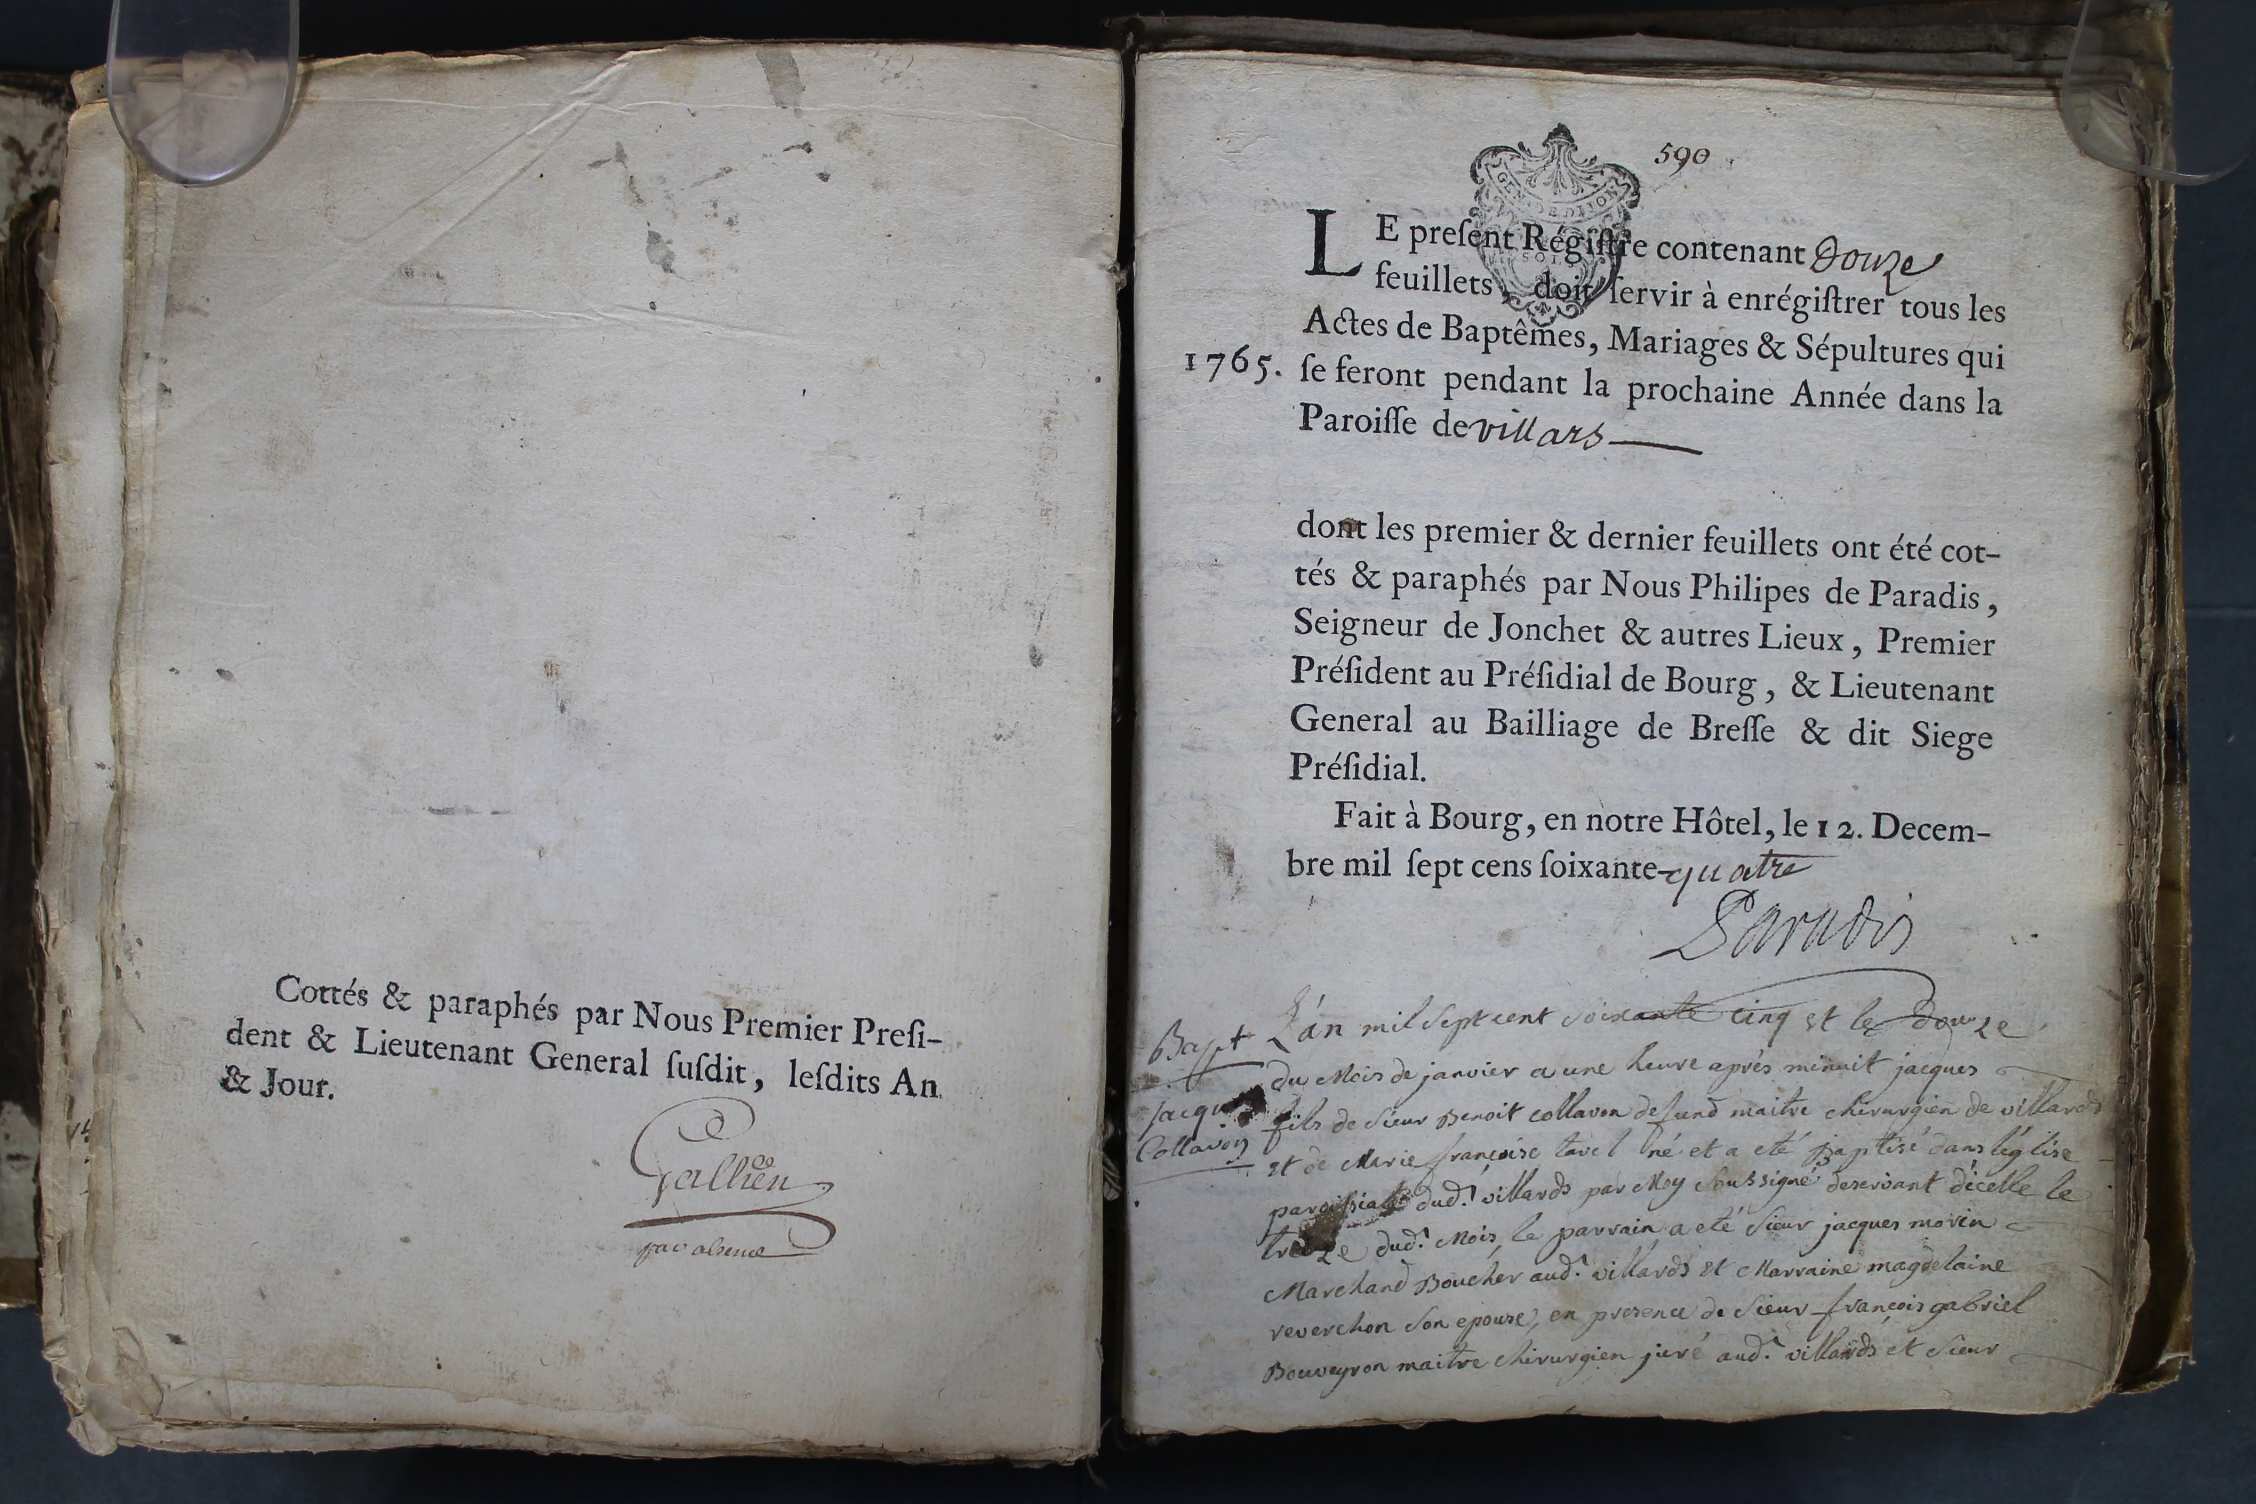 Cottés & paraphés par Nous Premier Preſi-
dent & Lieutenant General ſuſdit, leſdits An
& Jour.
Gallien
par absence
590
GEN. DE DIJON
SOLS
LE preſent Régiſtre contenant Douze
feuillets, doit ſervir à enrégiſtrer tous les
Actes de Baptêmes, Mariages & Sépultures qui
1765. ſe feront pendant la prochaine Année dans la
Paroiſſe de villars
dont les premier & dernier feuillets ont été cot-
tés & paraphés par Nous Philipes de Paradis,
Seigneur de Jonchet & autres Lieux, Premier
Préſident au Préſidial de Bourg, & Lieutenant
General au Bailliage de Breſſe & dit Siege
Préſidial.
Fait à Bourg, en notre Hôtel, le 12. Decem-
bre mil ſept cens ſoixante-quatre
Paradis
Bapt
Jacques
Collavon
L'án mil sept cent soixante cinq et le douze
du Mois de janvier a une heure aprés minuit jacques
fils de sieur Benoit collavon defund maitre chirurgien de villards
et de Marie françoise tavel né et a eté Baptisé dans l'église
paroissiale dud.t villards par Moy soussigné deservant d'icelle le
treize dud.t Mois, le parrain a eté sieur jacques morin
Marchand Boucher aud.t villards et Marraine magdelaine
reverchon son epouse, en presence de sieur françois gabriel
Bouveyron maitre chirurgien juré aud.t villards et sieur